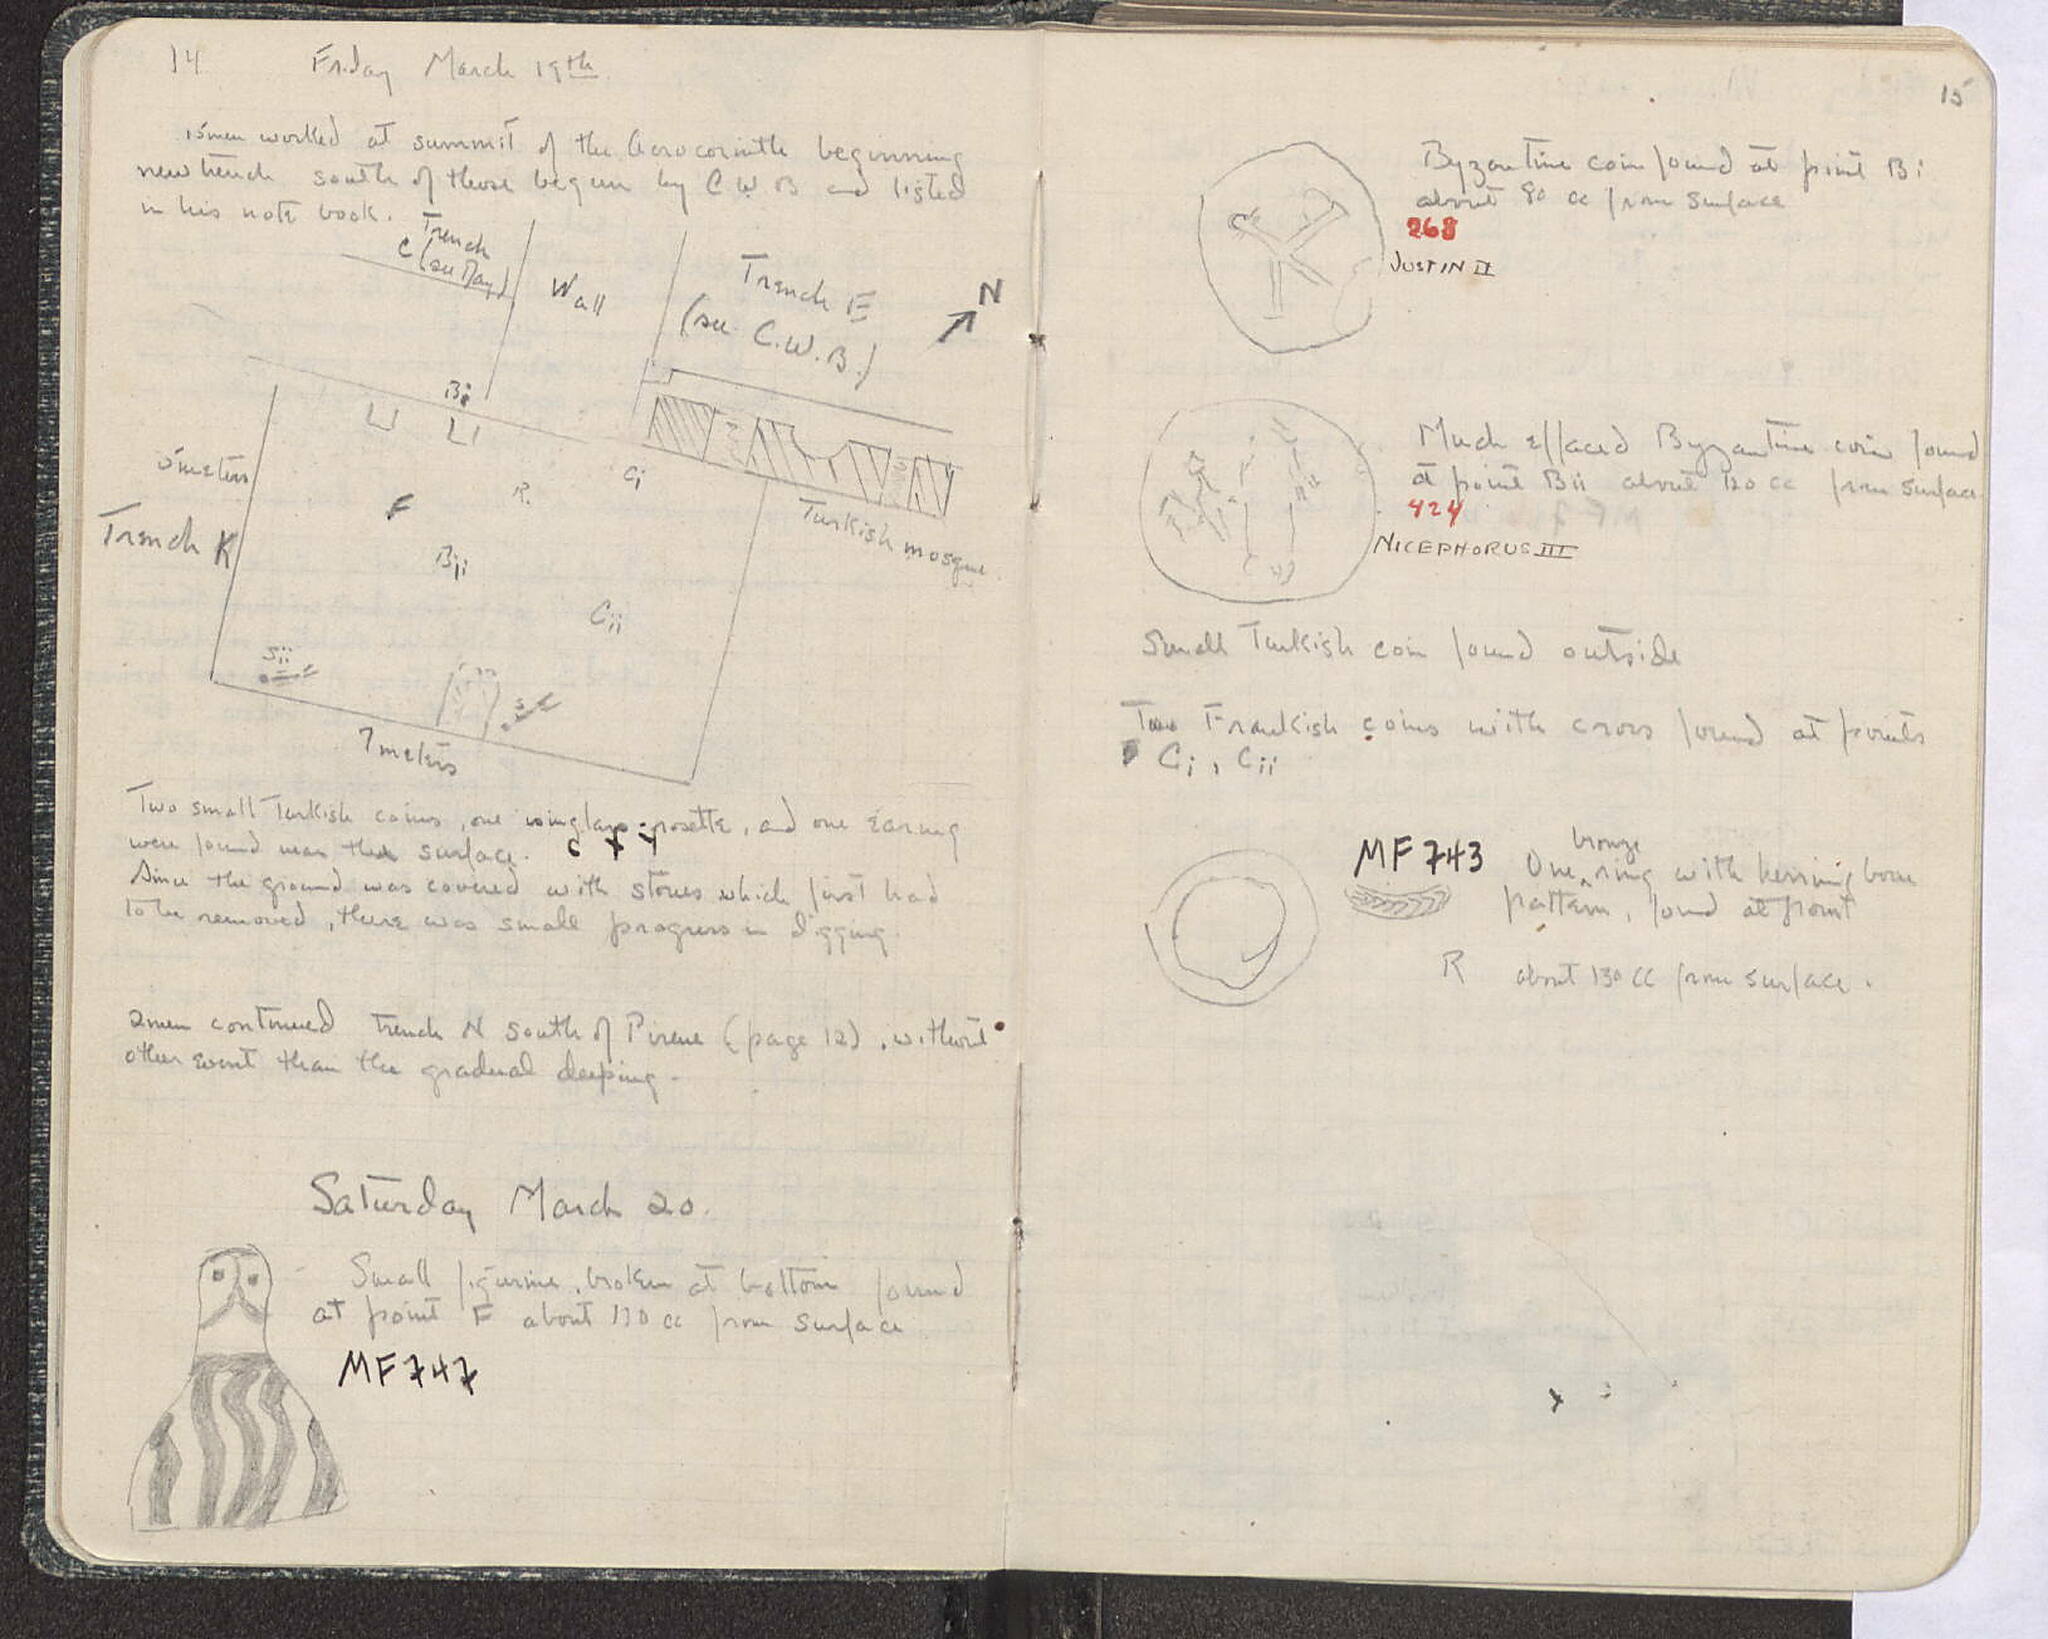 14 Friday March 19th
15 men worked at summit of the Acrocorinth beginning
new trench south of those begun by C W B and listed
in his note book.
Trench
C (see Day)
Wall
Trench E
(see C.W.B.)
N
Bi
5 meters
F
R.
Ci
Turkish mosque
Trench K
Bii
Cii
Sii
S
7 meters
Two small Turkish coins, one isinglass rosette, and one earing
were found near the surface.
Since the ground was covered with stones which first had
to be removed, there was small progress in digging.
2 men continued trench N south of Pirene (page 12), without
other event than the gradual deeping.
Saturday March 20.
Small figurine, broken at bottom found
at point F about 110 cc from surface
MF 747
15
Byzantine coin found at point Bi
about 80 cc from surface
268
JUSTIN II
Much effaced Byzantine coin found
at point Bii about 120 cc from surface
424
NICEPHORUS III
Small Turkish coin found outside
Two Frankish coins with cross found at points
Ci, Cii
MF 743
bronze
One ring with herring bone
pattern, found at point
R about 130 cc from surface.